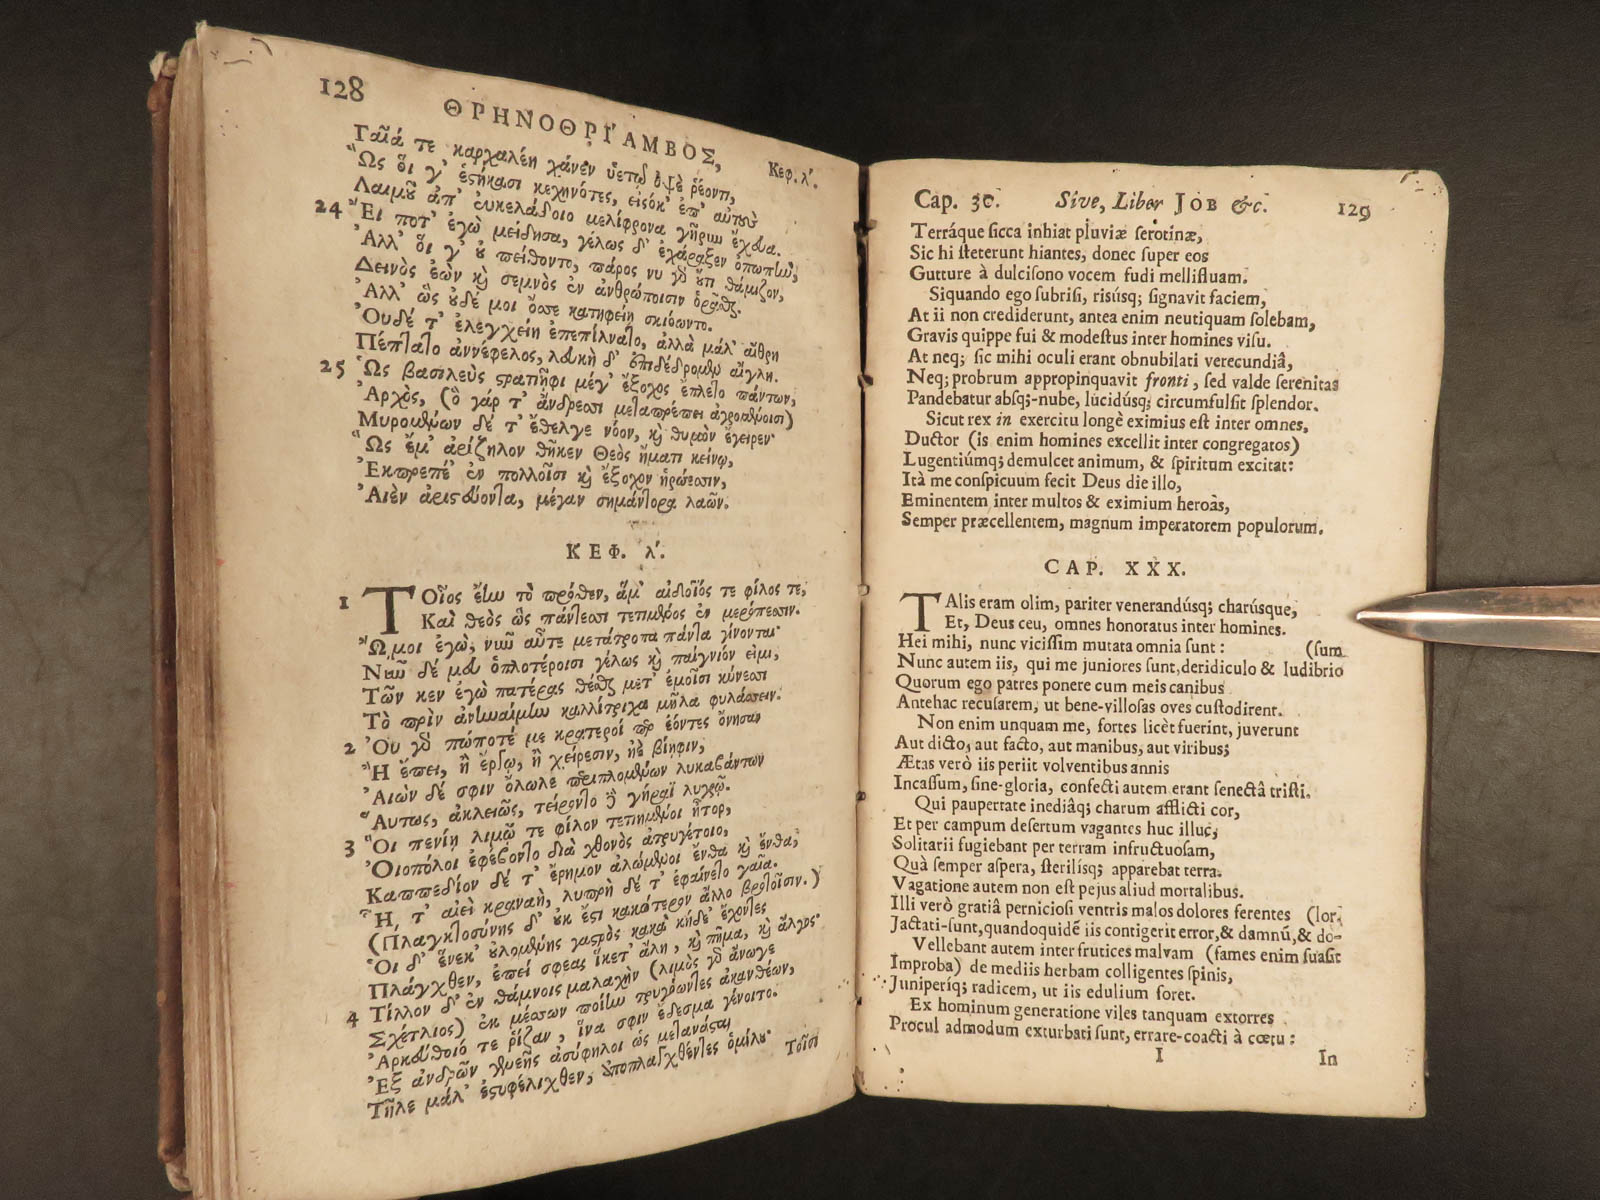 128
ΘΡΗΝΟΘΡΙ´ΑΜΒΟΣ,
Κεφ. λ'.
Γαῖά τε καρχαλέη χάνεν ὑετῷ ὀψὲ ῥέοντι,
Ὣς οἵ γ' ἑςήκασι κεχηνότες, εἰσόκ' ἐπ' αὐτοὺς
Λαιμοῦ ἀπ' εὐκελάδοιο μελίφρονα γῆρυν ἔχευα.
24 Εἴ ποτ' ἐγὼ μείδησα, γέλως δ' ἐχάραξεν ὀπωπὴν,
Ἀλλ' οἵ γ' οὐ πείθοντο, πάρος νυ γὰρ οὔτι θάμιζον,
Δεινὸς ἐὼν καὶ σεμνὸς ἐν ἀνθρώποισιν ὁρᾶσθαι.
Ἀλλ' ὣς οὐδέ μοι ὄσσε κατηφείη σκιόωντο.
Οὐδέ τ' ἐλεγχείη ἐπεπίλνατο, ἀλλὰ μάλ' αἴθρη
Πέπτατο ἀννέφελος, λευκὴ δ' ἐπιδέδρομεν αἴγλη.
25 Ὡς βασιλεὺς ςρατιῆφι μέγ' ἔξοχος ἔπλετο πάντων,
Ἀρχὸς, (ὃ γάρ τ' ἄνδρεσσι μεταπρέπει ἀγρομένοισι)
Μυρομένων δέ τ' ἔθελγε νόον, καὶ θυμὸν ἔγειρεν·
Ὣς ἔμ' ἀρίζηλον θῆκεν Θεὸς ἤματι κείνῳ,
Ἐκπρεπέ' ἐν πολλοῖσι καὶ ἔξοχον ἡρώεσσιν,
Αἰὲν ἀριςεύοντα, μέγαν σημάντορα λαῶν.
ΚΕΦ. λ'.
1 ΤΟῖος ἔην τὸ πρόσθεν, ἅμ' αἰδοῖός τε φίλος τε,
Καὶ θεὸς ὣς πάντεσσι τετιμένος ἐν μερόπεσσιν.
Ὤ μοι ἐγὼ, νῦν αὖτε μετάτροπα πάντα γίνονται·
Νῦν δέ μευ ὁπλοτέροισι γέλως καὶ παίγνιόν εἰμι,
Τῶν κεν ἐγὼ πατέρας θέσθαι μετ' ἐμοῖσι κύνεσσι
Τὸ πρὶν ἀνῃναίμην καλλίτριχα μῆλα φυλάσσειν.
2 Οὐ γὰρ πώποτέ με κρατεροί περ ἐόντες ὄνησαν
Ἢ ἔπει, ἢ ἔργῳ, ἢ χείρεσιν, ἠὲ βίηφιν,
Αἰὼν δέ σφιν ὄλωλε περιπλομένων λυκαβάντων
Αὔτως, ἀκλειῶς, τείροντο δὲ γήραϊ λυγρῷ.
3 Οἳ πενίῃ λιμῷ τε φίλον τετιημένοι ἦτορ,
Οἰοπόλοι ἐφέβοντο διὰ χθονὸς ἀτρυγέτοιο,
Καππεδίον δέ τ' ἔρημον ἀλώμενοι ἔνθα καὶ ἔνθα,
Ἥ, τ' αἰεὶ κραναὴ, λυπρὴ δέ τ' ἐφαίνετο γαῖα.
(Πλαγκτοσύνης δ' οὐκ ἔςι κακώτερον ἄλλο βροτοῖσιν.)
Οἱ δ' ἕνεκ' οὐλομένης γαςρὸς κακὰ κήδε' ἔχοντες
Πλάγχθεν, ἐπεί σφεας ἵκετ' ἄλη, καὶ πῆμα, καὶ ἄλγος·
4 Τίλλον δ' ἐν θάμνοις μαλαχὴν (λιμὸς γὰρ ἄνωγε
Σχέτλιος) ἐκ μέσσων ποίην τρυγόωντες ἀκανθέων,
Ἀρκεύθοιό τε ῥίζαν, ἵνα σφιν ἔδεσμα γένοιτο.
Ἐξ ἀνδρῶν γενεῆς ἀσύφηλοι ὡς μετανάςαι
Τῆλε μάλ' ἐςυφέλιχθεν, ὑποπλαγχθέντες ὁμίλου·
Τοῖσι
Cap. 30.
Sive, Liber JOB &c.
129
Terráque sicca inhiat pluviæ serotinæ,
Sic hi steterunt hiantes, donec super eos
Gutture à dulcisono vocem fudi mellifluam.
Siquando ego subrisi, risúsq; signavit faciem,
At ii non crediderunt, antea enim neutiquam solebam,
Gravis quippe fui & modestus inter homines visu.
At neq; sic mihi oculi erant obnubilati verecundiâ,
Neq; probrum appropinquavit fronti, sed valde serenitas
Pandebatur absq;-nube, lucidúsq; circumfulsit splendor.
Sicut rex in exercitu longè eximius est inter omnes,
Ductor (is enim homines excellit inter congregatos)
Lugentiúmq; demulcet animum, & spiritum excitat:
Ità me conspicuum fecit Deus die illo,
Eminentem inter multos & eximium heroàs,
Semper præcellentem, magnum imperatorem populorum.
CAP. XXX.
TAlis eram olim, pariter venerandúsq; charúsque,
Et, Deus ceu, omnes honoratus inter homines.
Hei mihi, nunc vicissim mutata omnia sunt: (sum
Nunc autem iis, qui me juniores sunt, deridiculo & ludibrio
Quorum ego patres ponere cum meis canibus
Antehac recusarem, ut bene-villosas oves custodirent.
Non enim unquam me, fortes licèt fuerint, juverunt
Aut dicto, aut facto, aut manibus, aut viribus;
Ætas verò iis periit volventibus annis
Incassum, sine-gloria, confecti autem erant senectâ tristi.
Qui paupertate inediâq; charum afflicti cor,
Et per campum desertum vagantes huc illuc,
Solitarii fugiebant per terram infructuosam,
Quà semper aspera, sterilísq; apparebat terra.
Vagatione autem non est pejus aliud mortalibus.
Illi verò gratiâ perniciosi ventris malos dolores ferentes (lor.
Jactati-sunt, quandoquidē iis contigerit error, & damnū, & do-
Vellebant autem inter frutices malvam (fames enim suasit
Improba) de mediis herbam colligentes spinis,
Juniperíq; radicem, ut iis edulium foret.
Ex hominum generatione viles tanquam extorres
Procul admodum exturbati sunt, errare-coacti à cœtu:
I
In